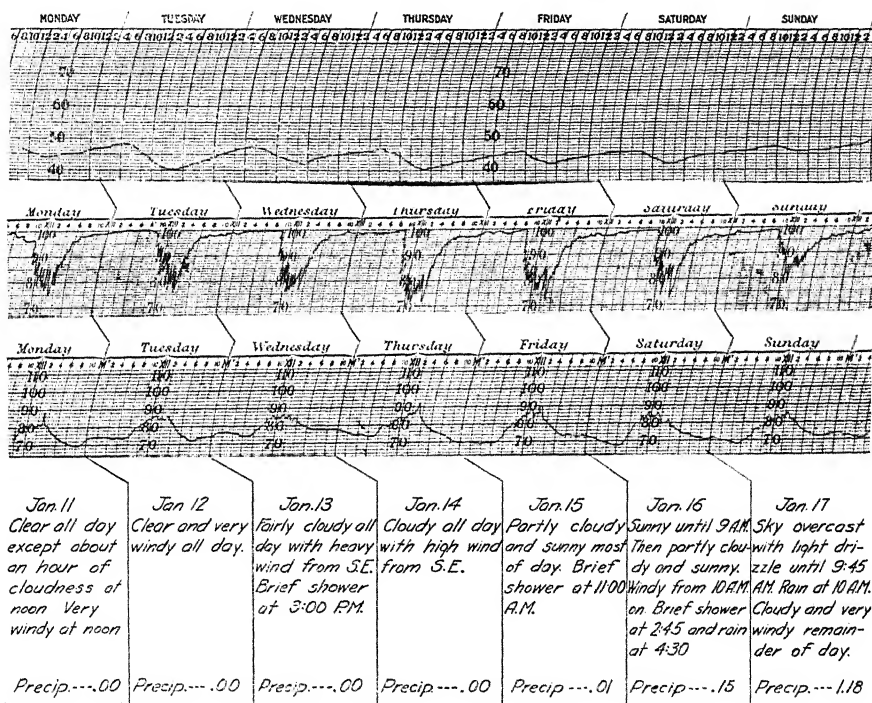 MONDAY TUESDAY WEDNESDAY THURSDAY FRIDAY SATURDAY SUNDAY
70 70
60 60
50 50
40 40
Monday Tuesday Wednesday Thursday Friday Saturday Sunday
100 100 100 100 100 100 100
90 90 90 90 90 90 90
80 80 80 80 80 80 80
70 70 70 70 70 70 70
Monday Tuesday Wednesday Thursday Friday Saturday Sunday
110 110 110 110 110 110 110
100 100 100 100 100 100 100
90 90 90 90 90 90 90
80 80 80 80 80 80 80
70 70 70 70 70 70 70
Jan. 11
Clear all day
except about
an hour of
cloudness at
noon Very
windy at noon
Precip.---.00
Jan 12
Clear and very
windy all day.
Precip.---.00
Jan. 13
Fairly cloudy all
day with heavy
wind from S.E.
Brief shower
at 3:00 P.M.
Precip.---.00
Jan. 14
Cloudy all day
with high wind
from S.E.
Precip.---.00
Jan. 15
Partly cloudy
and sunny most
of day. Brief
shower at 11:00
A.M.
Precip ---.01
Jan. 16
Sunny until 9 A.M.
Then partly clou-
dy and sunny.
Windy from 10 A.M.
on. Brief shower
at 2:45 and rain
at 4:30
Precip ---.15
Jan. 17
Sky overcast
with light dri-
zzle until 9:45
A.M. Rain at 10 A.M.
Cloudy and very
windy remain-
der of day.
Precip.---1.18